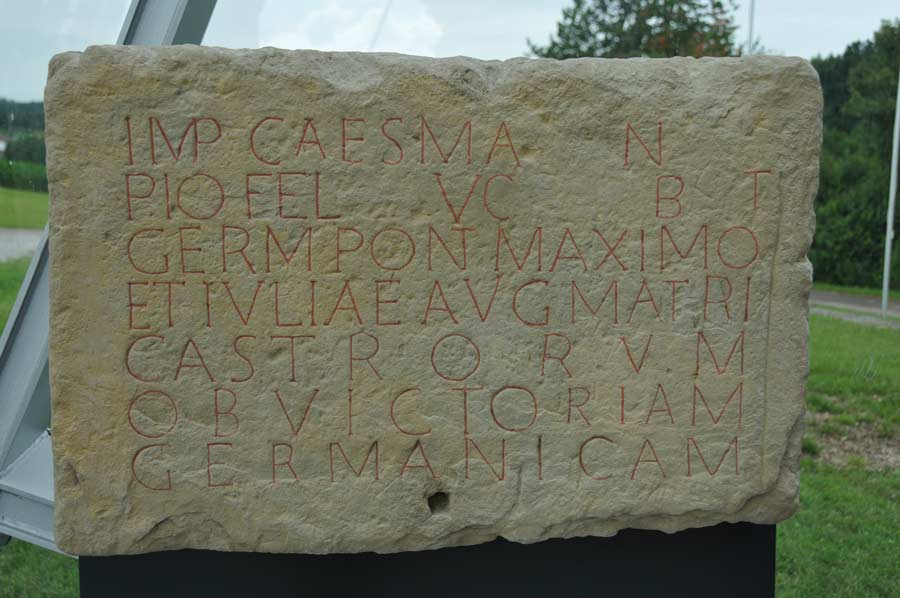 IMP CAES MA N
PIO FEL VC B T
GERM PONT MAXIMO
ET IVLIAE AVG MATRI
CASTRORVM
OB VICTORIAM
GERMANICAM